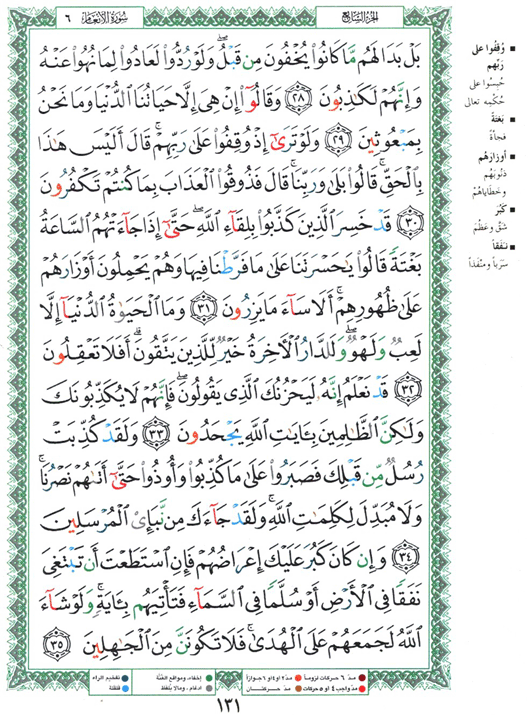 سُورَةُ الأنعَام ٦
الجزء السابع
بَلْ بَدَا لَهُم مَّا كَانُوا۟ يُخْفُونَ مِن قَبْلُ ۖ وَلَوْ رُدُّوا۟ لَعَادُوا۟ لِمَا نُهُوا۟ عَنْهُ
وَإِنَّهُمْ لَكَـٰذِبُونَ ﴿٢٨﴾ وَقَالُوٓا۟ إِنْ هِىَ إِلَّا حَيَاتُنَا ٱلدُّنْيَا وَمَا نَحْنُ
بِمَبْعُوثِينَ ﴿٢٩﴾ وَلَوْ تَرَىٰٓ إِذْ وُقِفُوا۟ عَلَىٰ رَبِّهِمْ ۚ قَالَ أَلَيْسَ هَـٰذَا
بِٱلْحَقِّ ۚ قَالُوا۟ بَلَىٰ وَرَبِّنَا ۚ قَالَ فَذُوقُوا۟ ٱلْعَذَابَ بِمَا كُنتُمْ تَكْفُرُونَ
﴿٣٠﴾ قَدْ خَسِرَ ٱلَّذِينَ كَذَّبُوا۟ بِلِقَآءِ ٱللَّهِ ۖ حَتَّىٰٓ إِذَا جَآءَتْهُمُ ٱلسَّاعَةُ
بَغْتَةً قَالُوا۟ يَـٰحَسْرَتَنَا عَلَىٰ مَا فَرَّطْنَا فِيهَا وَهُمْ يَحْمِلُونَ أَوْزَارَهُمْ
عَلَىٰ ظُهُورِهِمْ ۚ أَلَا سَآءَ مَا يَزِرُونَ ﴿٣١﴾ وَمَا ٱلْحَيَوٰةُ ٱلدُّنْيَآ إِلَّا
لَعِبٌ وَلَهْوٌ ۖ وَلَلدَّارُ ٱلْـَٔاخِرَةُ خَيْرٌ لِّلَّذِينَ يَتَّقُونَ ۗ أَفَلَا تَعْقِلُونَ
﴿٣٢﴾ قَدْ نَعْلَمُ إِنَّهُۥ لَيَحْزُنُكَ ٱلَّذِى يَقُولُونَ ۖ فَإِنَّهُمْ لَا يُكَذِّبُونَكَ
وَلَـٰكِنَّ ٱلظَّـٰلِمِينَ بِـَٔايَـٰتِ ٱللَّهِ يَجْحَدُونَ ﴿٣٣﴾ وَلَقَدْ كُذِّبَتْ
رُسُلٌ مِّن قَبْلِكَ فَصَبَرُوا۟ عَلَىٰ مَا كُذِّبُوا۟ وَأُوذُوا۟ حَتَّىٰٓ أَتَىٰهُمْ نَصْرُنَا ۚ
وَلَا مُبَدِّلَ لِكَلِمَـٰتِ ٱللَّهِ ۚ وَلَقَدْ جَآءَكَ مِن نَّبَإِى۟ ٱلْمُرْسَلِينَ
﴿٣٤﴾ وَإِن كَانَ كَبُرَ عَلَيْكَ إِعْرَاضُهُمْ فَإِنِ ٱسْتَطَعْتَ أَن تَبْتَغِىَ
نَفَقًا فِى ٱلْأَرْضِ أَوْ سُلَّمًا فِى ٱلسَّمَآءِ فَتَأْتِيَهُم بِـَٔايَةٍ ۚ وَلَوْ شَآءَ
ٱللَّهُ لَجَمَعَهُمْ عَلَى ٱلْهُدَىٰ ۚ فَلَا تَكُونَنَّ مِنَ ٱلْجَـٰهِلِينَ ﴿٣٥﴾
وُقِفُوا على
رَبِّهم
حُبِسُوا على
حُكْمِه تعالى
بَغْتَةً
فجأةً
أوزارهُم
ذنوبَهُم
وخطاياهُم
كَبُرَ
شَقَّ وعَظُمَ
نَفَقاً
سَرَباً ومنفذاً
مدّ ٦ حركات لزوماً
مدّ ٢ او ٤ او ٦ جوازاً
إخفاء، ومواقع الغُنَّة
تفخيم الراء
مدّ واجب ٤ او ٥ حركات
مدّ حركتان
ادغام، ومالا يُلفَظ
قلقلة
١٣١